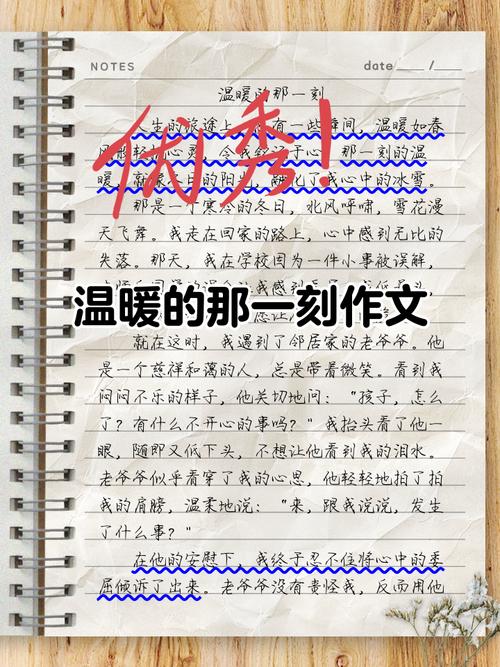 NOTES
date____/____
温暖的那一刻
优秀!
人生的旅途上，有一些瞬间，温暖如春
心灵，令我铭记于心。那一刻的温
暖，就像冬日的阳光，融化了我心中的冰雪。
那是一个寒冷的冬日，北风呼啸，雪花漫
天飞舞。我走在回家的路上，心中感到无比的
失落。那天，我在学校因为一件小事被误解，
温暖的那一刻作文
就在这时，我遇到了邻居家的老爷爷。他
是一个慈祥和蔼的人，总是带着微笑。看到我
闷闷不乐的样子，他关切地问："孩子，怎么
了？有什么不开心的事吗？"我抬头看了他一
眼，随即又低下头，不想让他看到我的泪水。
老爷爷似乎看穿了我的心思，他轻轻地拍了拍
我的肩膀，温柔地说："来，跟我说说，发生
了什么事？"
在他的安慰下，我终于忍不住将心中的委
屈倾诉了出来。老爷爷没有责怪我，反而用他